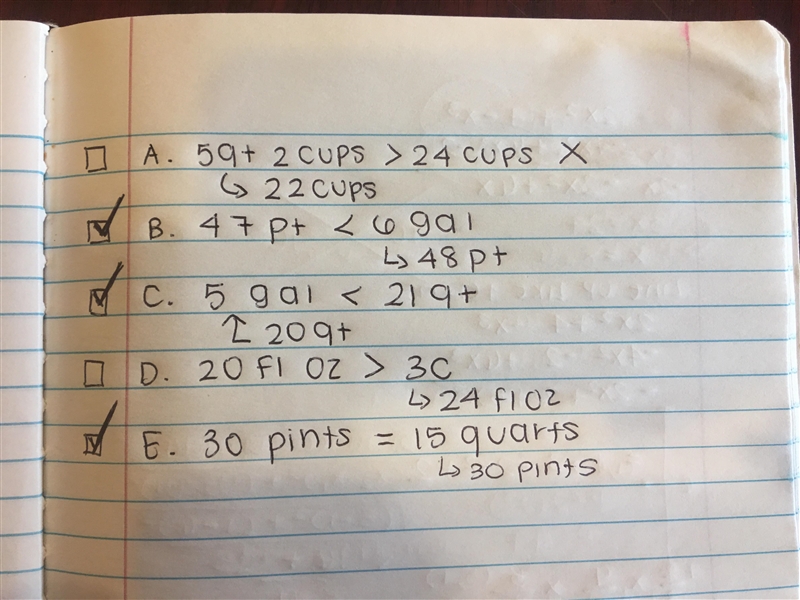 ☐ A. 5qt 2 cups > 24 cups X
↳ 22 cups
☑ B. 47 pt < 6 gal
↳ 48 pt
☑ C. 5 gal < 21 qt
↑ 20 qt
☐ D. 20 fl oz > 3c
↳ 24 fl oz
☑ E. 30 pints = 15 quarts
↳ 30 pints